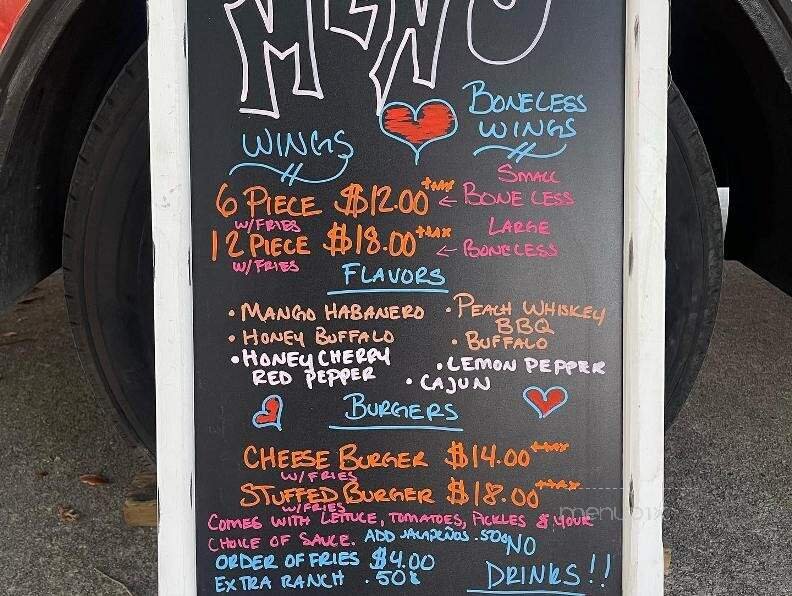 MENU
WINGS
BONELESS
WINGS
6 PIECE $12.00 +TAX ← SMALL BONELESS
W/FRIES
12 PIECE $18.00 +TAX ← LARGE BONELESS
W/FRIES
FLAVORS
• MANGO HABANERO
• PEACH WHISKEY
BBQ
• HONEY BUFFALO
• BUFFALO
• HONEY CHERRY
RED PEPPER
• LEMON PEPPER
• CAJUN
BURGERS
CHEESE BURGER $14.00 +TAX
W/FRIES
STUFFED BURGER $18.00 +TAX
W/FRIES
COMES WITH LETTUCE, TOMATOES, PICKLES & YOUR
CHOICE OF SAUCE. ADD JALAPEÑOS .50¢
ORDER OF FRIES $4.00
EXTRA RANCH .50¢
NO
DRINKS!!